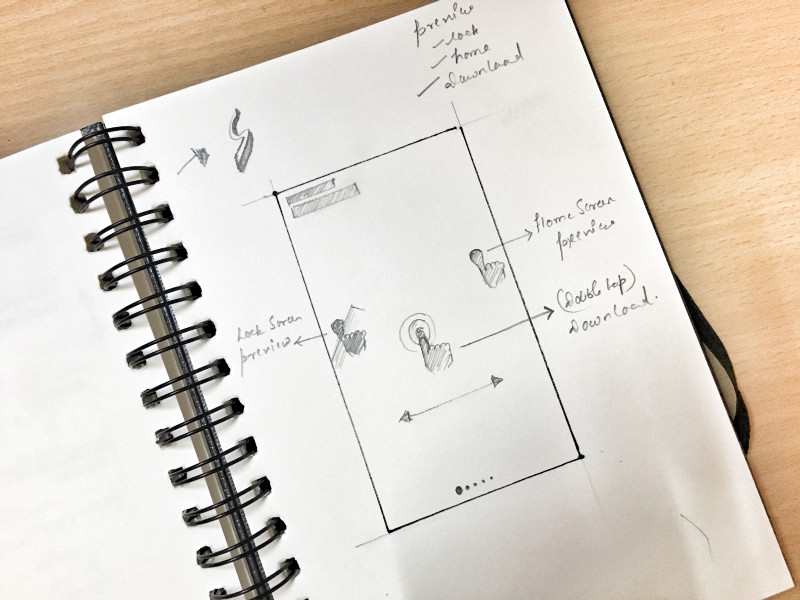 preview
lock
home
download
Home Screen
preview
(Double tap)
Download.
Lock Screen
preview